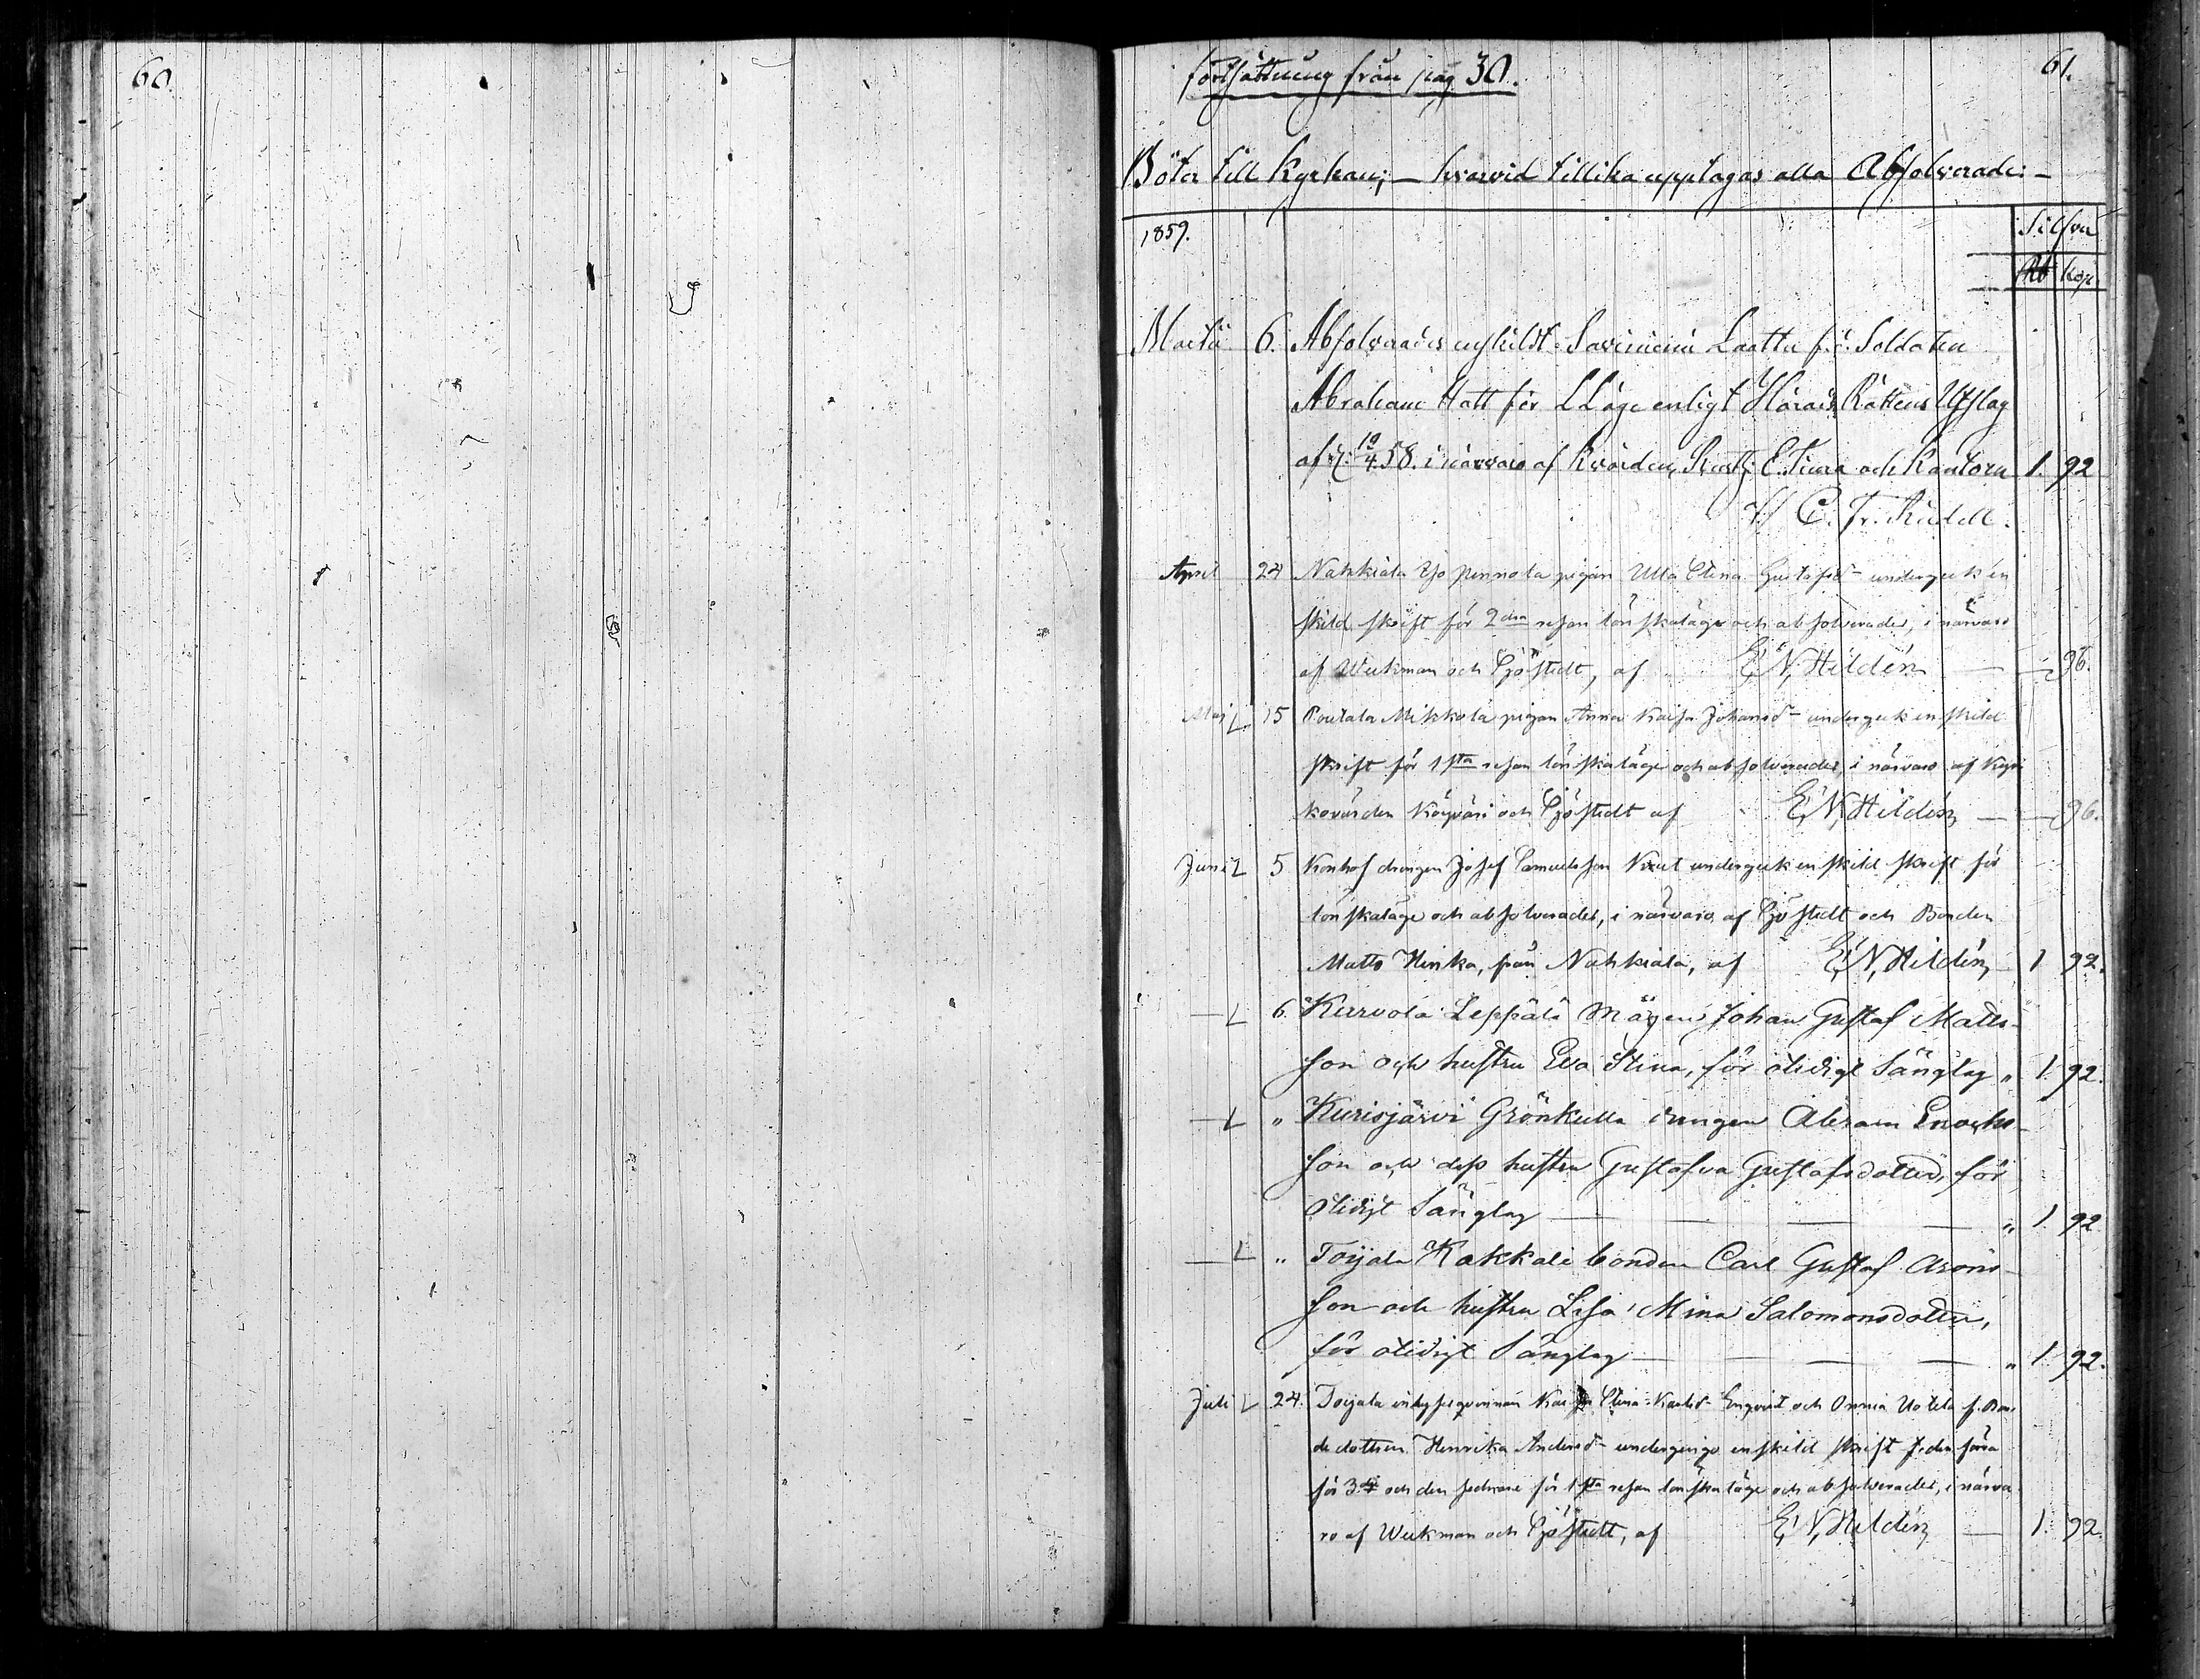 60.
fortsättning från pag 30.
61.
Böter till Kyrkan; – hvarvid tillika upptagas alla Absolverade: –
1859.
Silfver
Rb Kop
Martii 6. Absolverades enskildt Saviniemi Laattu f.d. Soldaten
Abraham Hatt för LLäge enligt Härads Rättens Utslag
af d. 19/4 58. i närvaro af Kvärden, E. Tiura och Kantorn 1. 92
C. Fr.
April 24 Nahkiala Yjo Pennola pigan Ulla Stina Gustafsd– undergick en
skild skrift för 2dra resan lönskaläge och absolverades, i närvaro
af Weckman och Sjöstedt, af E. N. Hildén — – 96.
Maj 15 Pontala Mikkola pigan Anna Kaisa Johansd– undergick enskild
skrift för 1sta resan lönskaläge och absolverades, i närvaro af Kyr
kovärden och Sjöstedt af E. N. Hildén — – 96.
Juni 5 Konhof drengen Josef Samuelsson undergick enskild skrift för
lönskaläge och absolverades, i närvaro af Sjöstedt och Bonden
Matts Henka, från Nahkiala, af E. N. Hildén 1 92.
– 6. Kurvola Leppälä Mågen Johan Gustaf Matts-
son och hustru Eva Stina, för otidigt Sänglag " 1. 92.
– " Kurisjärvi Grönkulla drengen Abram Enochs-
son och dess hustru Gustafva Gustafsdotter, för
Otidigt Sänglag — — — — " 1. 92
– " Toijala Kakkali bonden Carl Gustaf Arons-
son och hustru Lisa Mina Salomonsdotter,
för otidigt Sänglag — — — " 1. 92.
Juli 24. Toijala inhyseqvinnan Kaisa Stina Karlsd– Enqvist och Onnia Uotila f. Bon
dedottren Henrika Andersd– undergingo enskild skrift den förra
för 3. och den sednare för 1sta resan lönskaläge och absolverades, i närva
ro af Weckman och Sjöstedt, af E. N. Hildén — 1. 92.